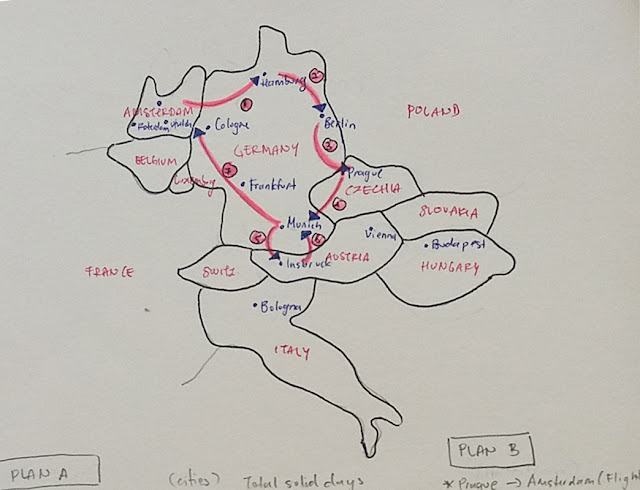 Hamburg
2
AMSTERDAM
1
POLAND
Cologne
Berlin
GERMANY
3
BELGIUM
7
Prague
Frankfurt
CZECHIA
4
SLOVAKIA
Munich
Vienna
5
6
Budapest
Insbruck
AUSTRIA
HUNGARY
FRANCE
SWITZ
Bologna
ITALY
PLAN B
PLAN A
(cities) Total solid days
* Prague → Amsterdam (Flight